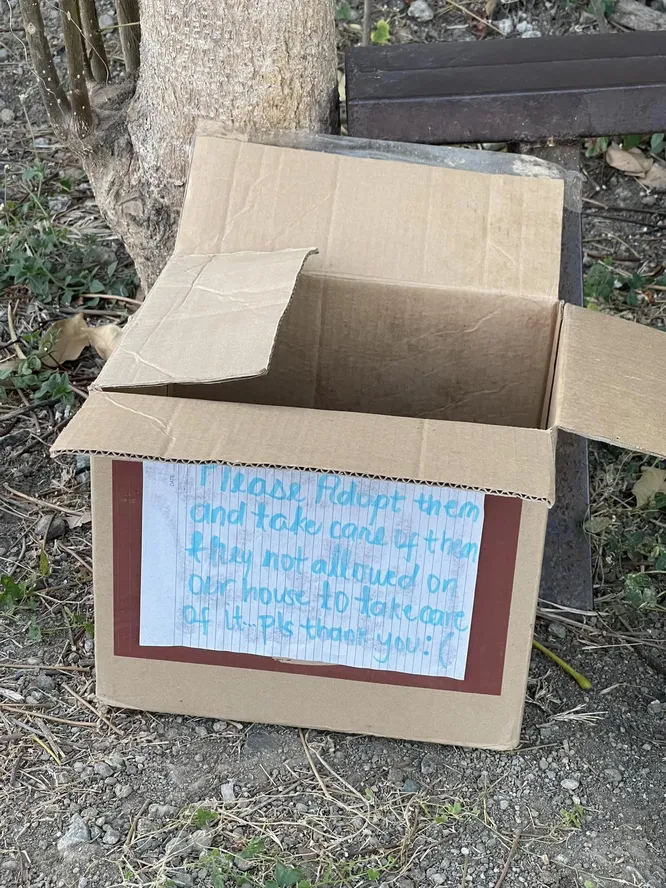 Please Adopt them
and take care of them
they not allowed on
our house to take care
of it.. pls thank you : (